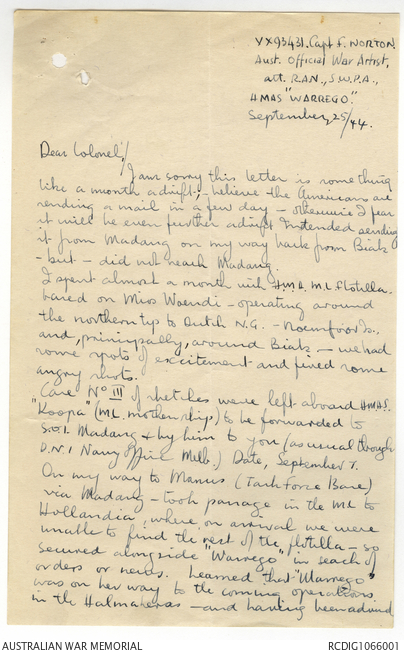 VX93431. Capt F. NORTON
Aust. Official War Artist,
att. R.A.N., S.W.P.A.,
HMAS "WARREGO."
September, 25/44.
Dear Colonel,/
I am sorry this letter is something
like a month adrift; - believe the Americans are
sending a mail in a few days - otherwise I fear
it will be even further adrift. Intended sending
it from Madang on my way back from Biak
- but - did not reach Madang.
I spent almost a month with H.M.A. M.L. flotilla.
based on Mios Woendi - operating around
the northern tip to Dutch N.G. - Noemfoor Is.,
and, principally, around Biak - we had
some spots of excitement and fired some
angry shots.
Case No III of sketches were left aboard HMAS.
"Koopa" (M.L. mothership) to be forwarded to
S.O.I. Madang & by him to you (as usual through
D.N.I Navy Office Melb.) Date, September 7.
On my way to Manus (Task Force Base)
via Madang - took passage in the ML to
Hollandia, where, on arrival we were
unable to find the rest of the flotilla - so
secured alongside "Warrego" in seach of
orders or news. Learned that "Warrego"
was on her way to the coming operations
in the Halmaheras - and having been advised
AUSTRALIAN WAR MEMORIAL
RCDIG1066001